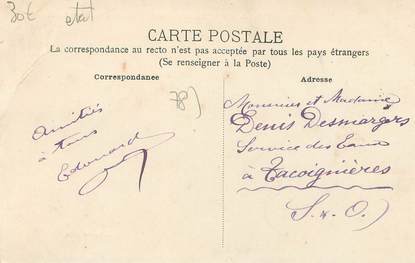 30€ etat
CARTE POSTALE
La correspondance au recto n'est pas acceptée par tous les pays étrangers
(Se renseigner à la Poste)
Correspondance
Adresse
78)
Amitiés
à tous
Edouard
Monsieur et Madame
Denis Desmargers
Service des Eaux
à Tacoignières
S. & O.)